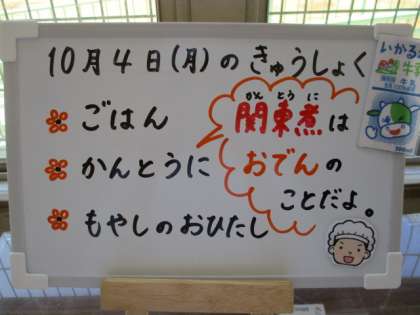 10月4日(月)のきゅうしょく
ごはん
かんとうに
もやしのおひたし
かんとうに
関東煮は
おでんの
ことだよ。
いかる
牛乳